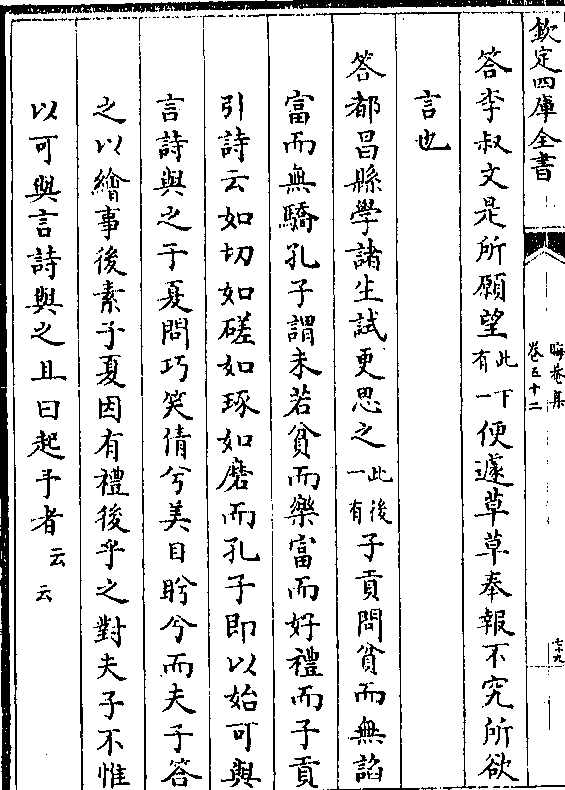 欽定四庫全書
晦菴集
卷五十二
七十九
答李叔文是所願望此下有一便遽草草奉報不究所欲
言也
答都昌縣學諸生試更思之此後一有子貢問貧而無諂
富而無驕孔子謂未若貧而樂富而好禮而子貢
引詩云如切如磋如琢如磨而孔子即以始可與
言詩與之子夏問巧笑倩兮美目盼兮而夫子答
之以繪事後素子夏因有禮後乎之對夫子不惟
以可與言詩與之且曰起予者云云